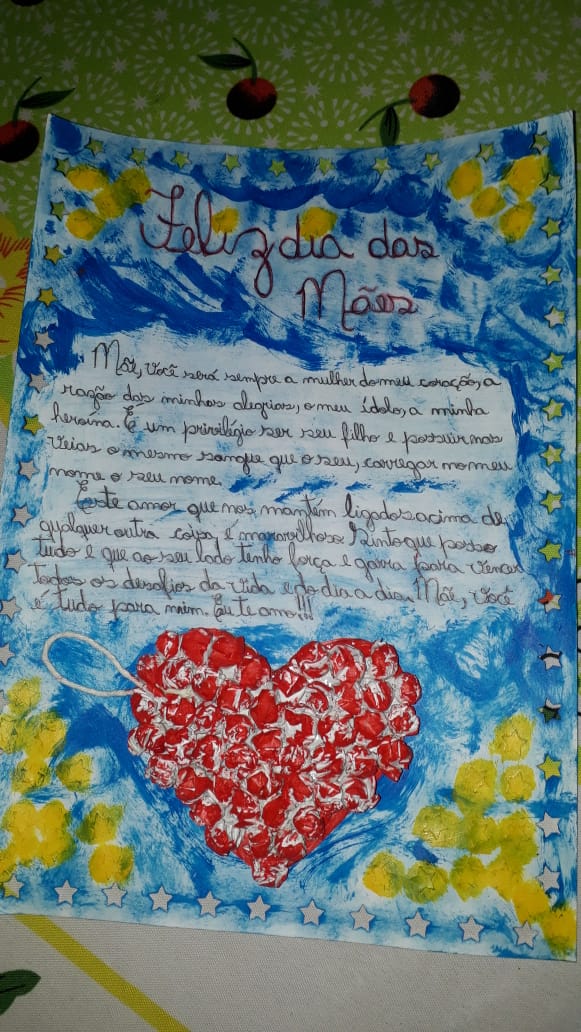 Feliz dia das
Mães
Mãe, você será sempre a mulher do meu coração, a
razão das minhas alegrias, o meu ídolo, a minha
heroina. É um privilégio ser seu filho e possuir nas
veias o mesmo sangue que o seu, carregar no meu
nome o seu nome.
Este amor que nos, mantém ligados acima de
qualquer outra coisa, é maravilhoso. Sinto que posso
tudo e que ao seu lado tenho força e garra para vencer
todos os desafios da vida e do dia a dia. Mãe, você
é tudo para mim. Eu te amo!!!